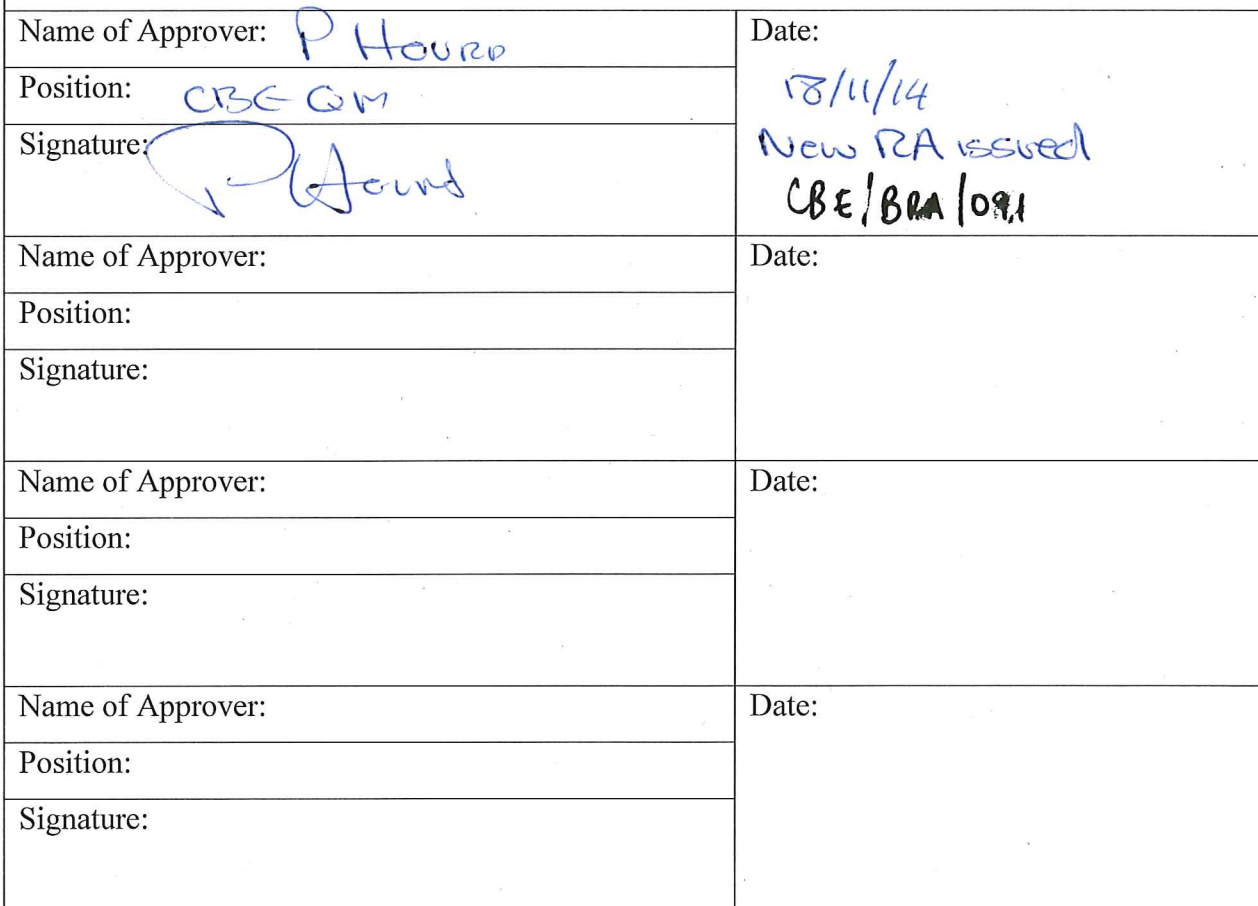 Name of Approver: P Hourd
Date:
18/11/14
Position: CBE QM
New RA issued
Signature: P Hourd
CBE/BRA/091
Name of Approver:
Date:
Position:
Signature:
Name of Approver:
Date:
Position:
Signature:
Name of Approver:
Date:
Position:
Signature: